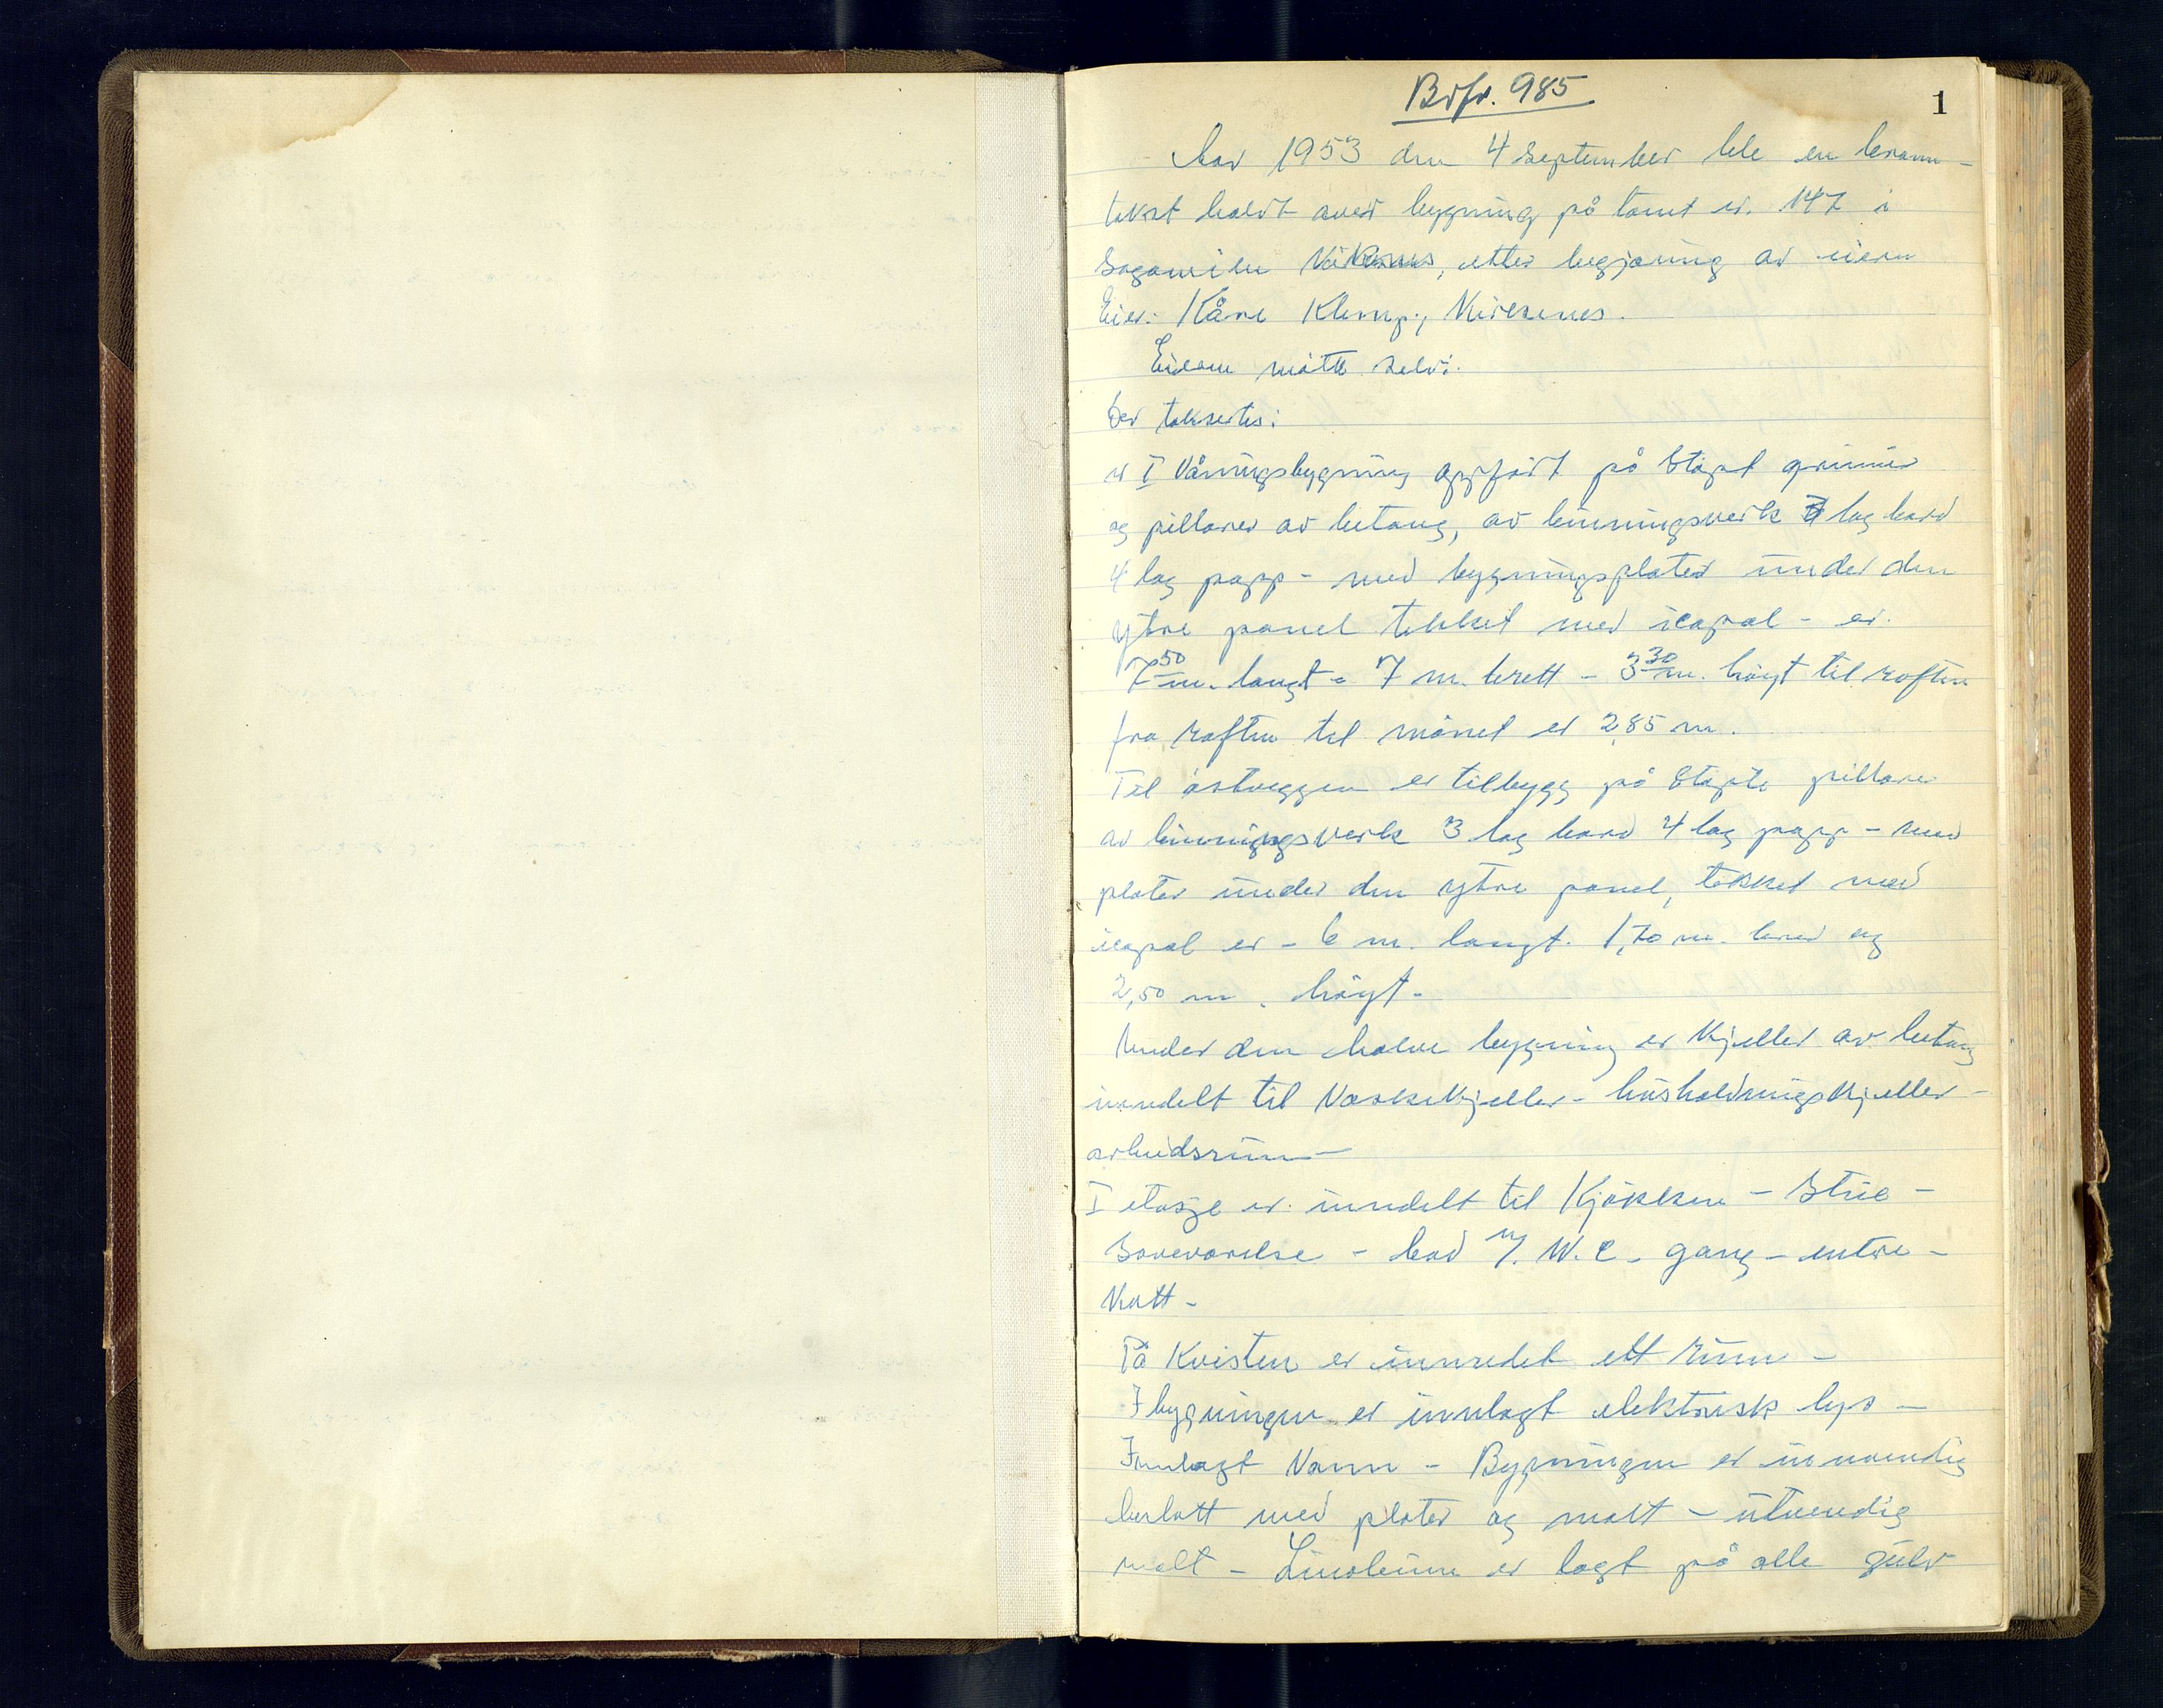 1
Brfv. 985
Aar 1953 den 4 September ble en brann-
takst holdt over bygning på tomt nr. 147 i
Kirkenes, etter begjæring av eieren
Eier: Kåre Klemp, Kirkenes.
Eieren møtte selv.
Der taksertes:
nr I Våningsbygning oppført på støpt grunnmur
og pillarer av betong, av binningsverk 3 lag bord
4 lag papp - med bygningsplater under den
ytre panel tekket med icopal - er
7 50 m. langt - 7 m. brett - 3 30 m. høyt til raften
fra raften til mønet er 2,85 m.
Til østveggen er tilbygg på støpte pillarer
av binningsverk 3 lag bord 4 lag papp - med
plater under den ytre panel, tekket med
icopal er - 6 m. langt. 1,70 m. bred og
2,50 m. høyt -
Under den halve bygning er kjeller av betong
inndelt til Vaskekjeller - husholdningskjeller -
arbeidsrum -
I etasje er inndelt til Kjøkken - Stue -
Soveværelse - bad m/. W.C. gang - entre -
Kott -
På Kvisten er innredet ett rum -
I bygningen er innlagt elektrisk lys -
Innlagt Vann - Bygningen er innvendig
beslått med plater og malt - utvendig
malt - Linoleum er lagt på alle gulv